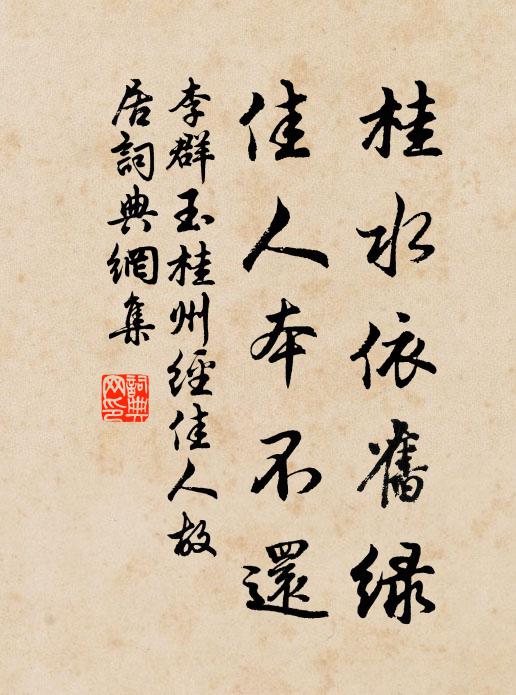 桂水依舊緑
佳人本不還
李群玉桂州經佳人故
居詞典網集
詞典
网印